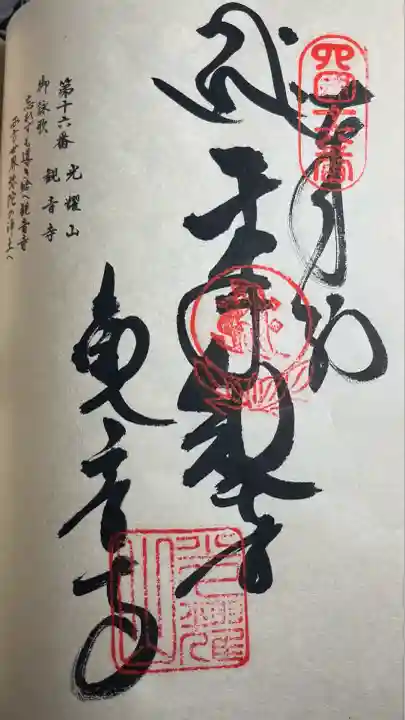 四国第十六番
奉納
千手観世音
観音寺
第十六番 光耀山
御詠歌 観音寺
忘れずも導き給へ観音寺
西方世界弥陀の浄土へ